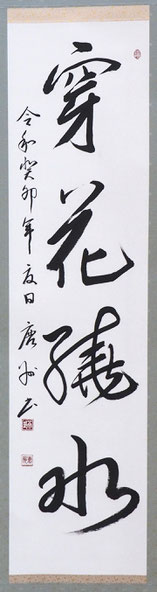 穿花繞水
令和癸卯年夏日 唐